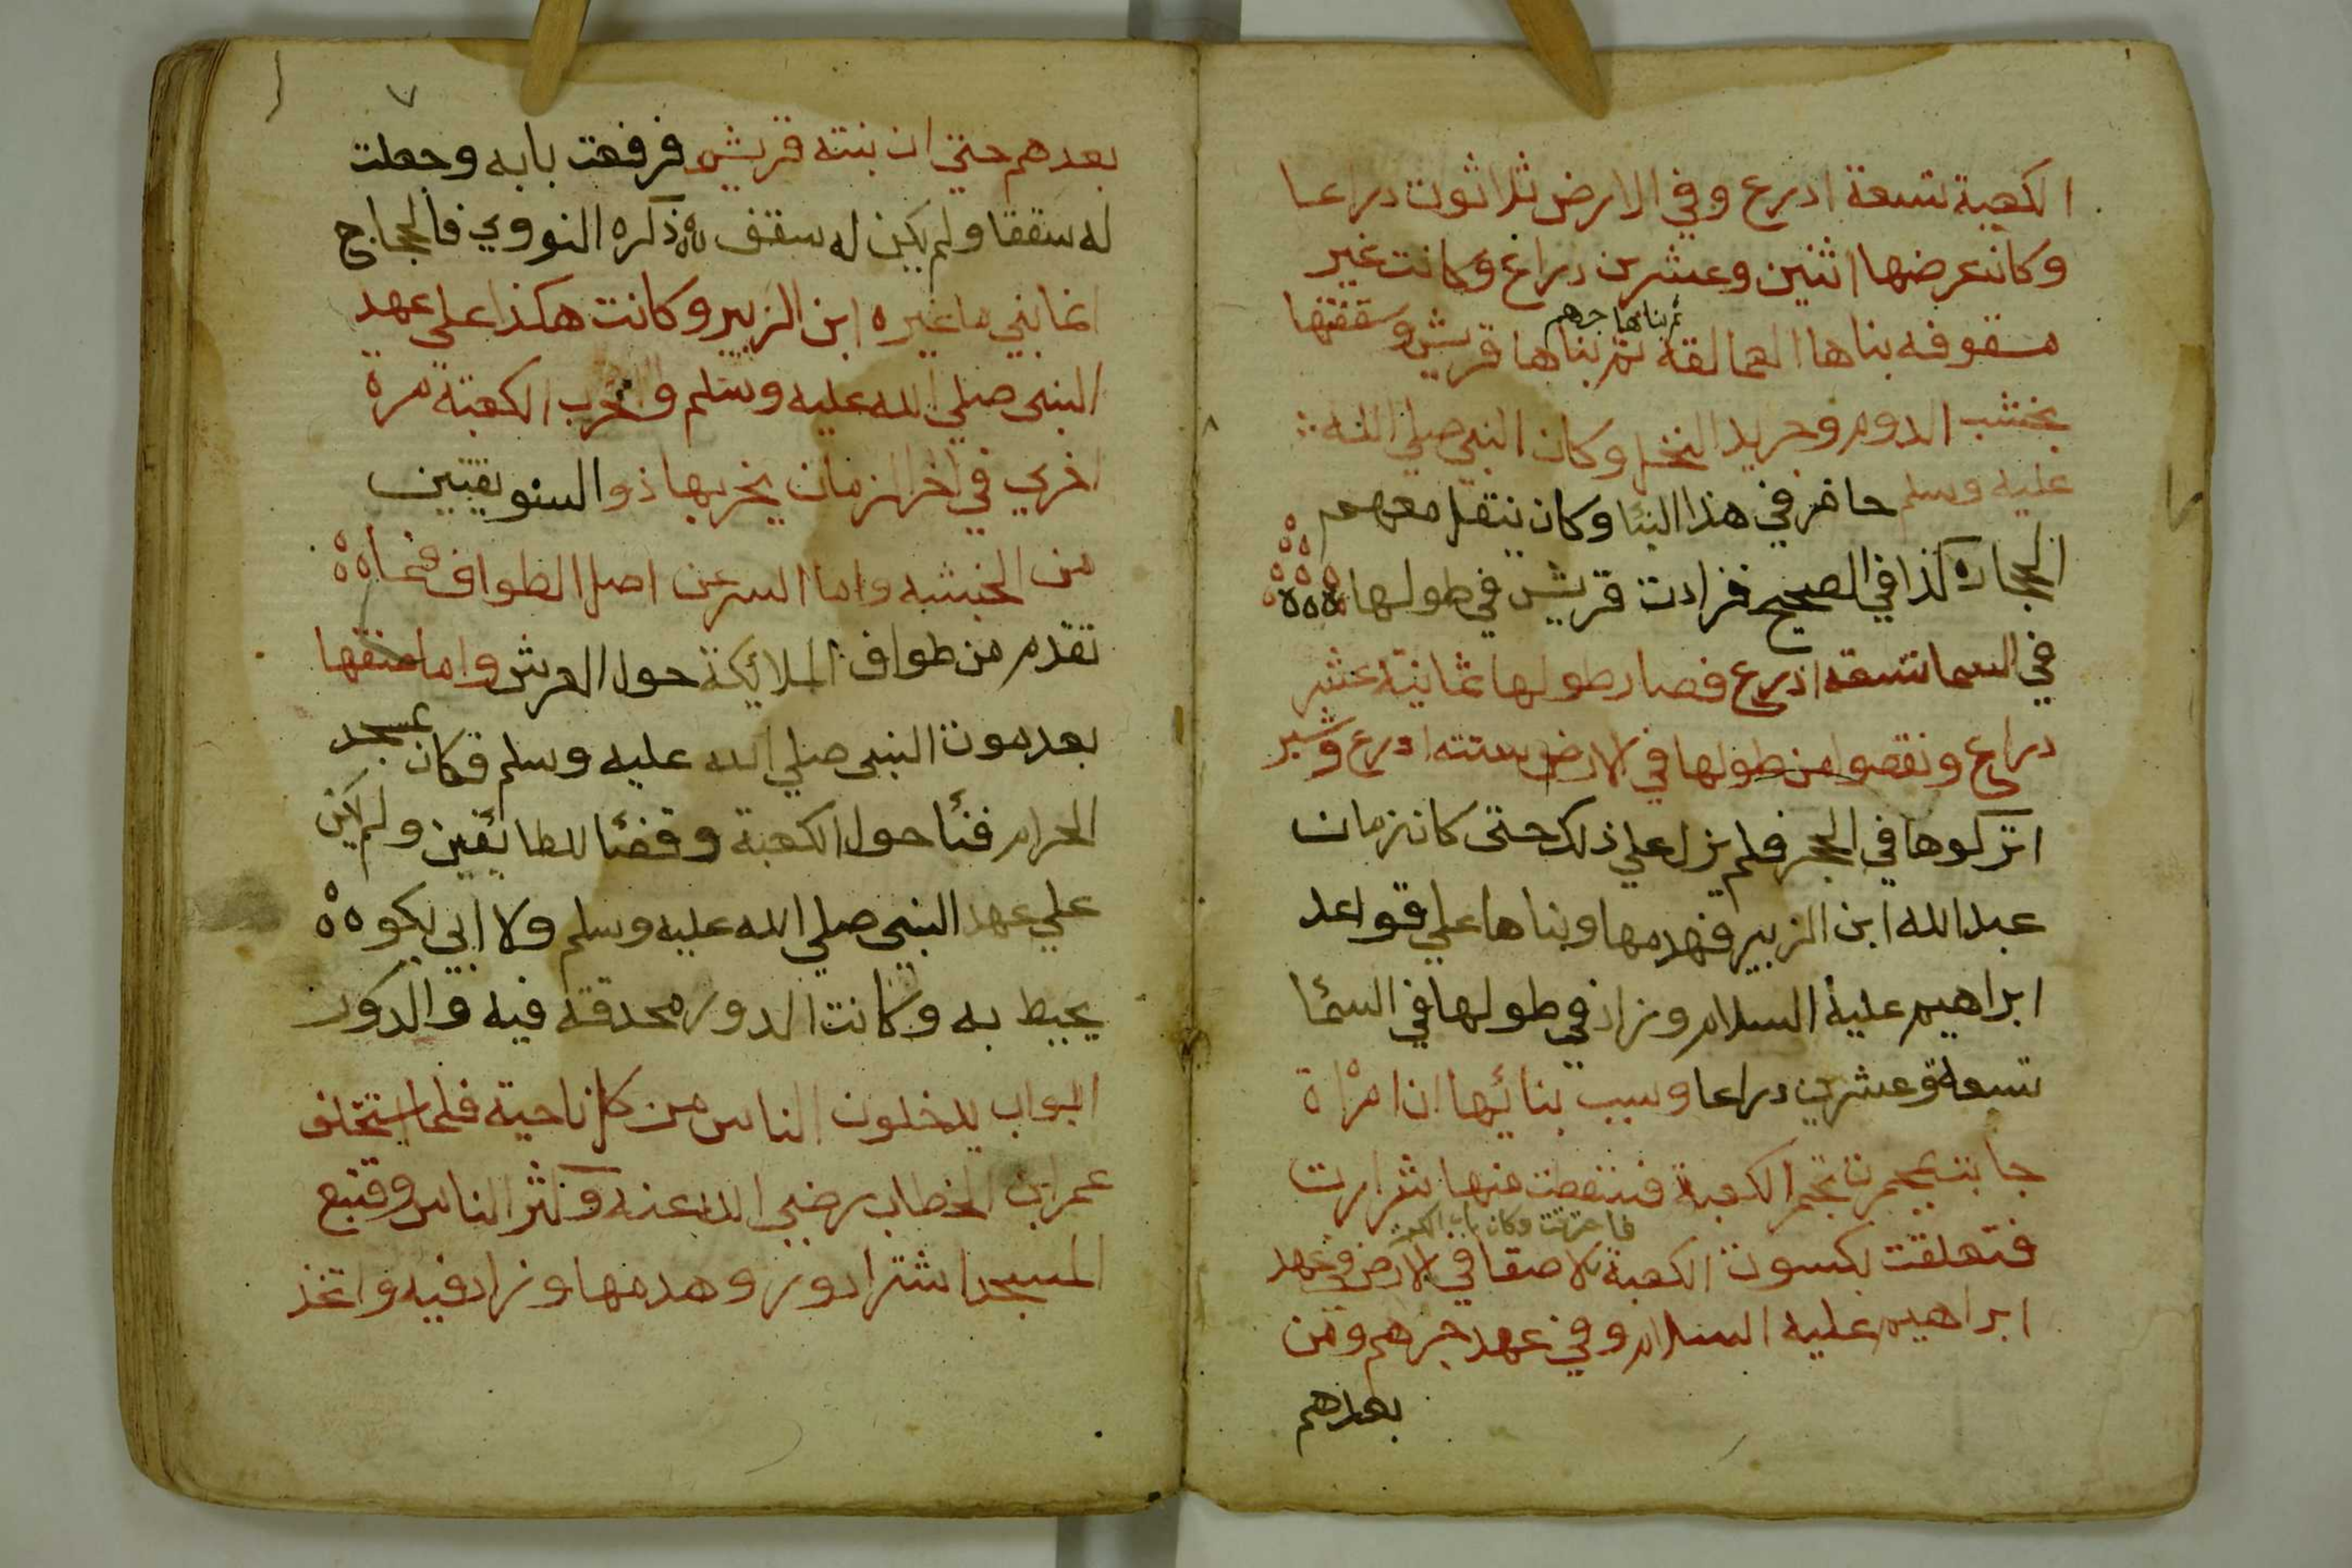 الكعبة تسعة ادرع وفي الارض ثلاثون دراعا
وكان عرضها اثنين وعشرين دراع وكانت غير
ثم بناها جرهم
مسقوفه بناها العمالقة ثم بناها قريش وسقفتها
بخشب الدوم وجريد النخل وكان النبي صلي الله
عليه وسلم حاضر في هذا البنا وكان ينقل معهم
الحجاره كذا في الصحيح فزادت قريش في طولها
في السما تسعة اذرع فصار طولها ثمانية عشر
دراع ونقصوا من طولها في الارض ستة ادرع وشبر
اتركوها في الحجر فلم يزل علي ذلك حتى كان زمان
عبد الله ابن الزبير فهدمها وبناها علي قواعد
ابراهيم عليه السلام وزاد في طولها في السما
تسعة وعشرين دراعا وسبب بنائها ان امراة
جات بمجمرت تجمر الكعبة فتنفطت منها شرارت
فاحترقت وكان باب الكعبة
فتعلقت بكسوت الكعبة لاصقا في الارض في عهد
ابراهيم عليه السلام وفي عهد جرهم ومن
بعدهم
٧
بعدهم حتي ان بنته قريش فرفعت بابه وجعلت
له سقفا ولم يكن له سقف ذكره النووي فالحجاج
انما بني ما غيره ابن الزبير وكانت هكذا علي عهد
النبي صلي الله عليه وسلم وتخرب الكعبة مرة
اخري في اخر الزمان يخربها ذو السويقتين
من الحبشه واما السر عن اصل الطواف فما
تقدم من طواف الملائكة حول العرش واما
بعد موت النبي صلي الله عليه وسلم فكان مسجد
الحرام فنا حول الكعبة وفضئا للطائفين ولم يكن
علي عهد النبي صلي الله عليه وسلم ولا ابي بكو
يحيط به وكانت الدور محدقة فيه والدور
ابواب يدخلون الناس من كل ناحية فلما استخلف
عمر ابن الخطاب رضي الله عنه وكثر الناس وقتبع
المسجد اشترا دور وهدمها وزاد فيه واتخذ